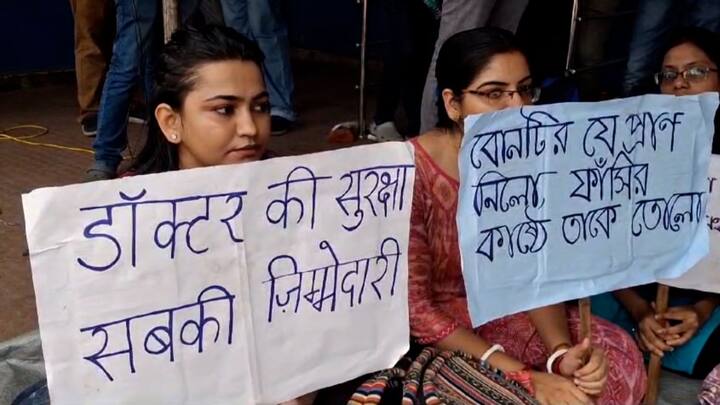 डॉक्टर की सुरक्षा
सबकी ज़िम्मेदारी
বোনটির যে প্রাণ
নিলো ফাঁসির
কাষ্ঠে তাকে তোলো